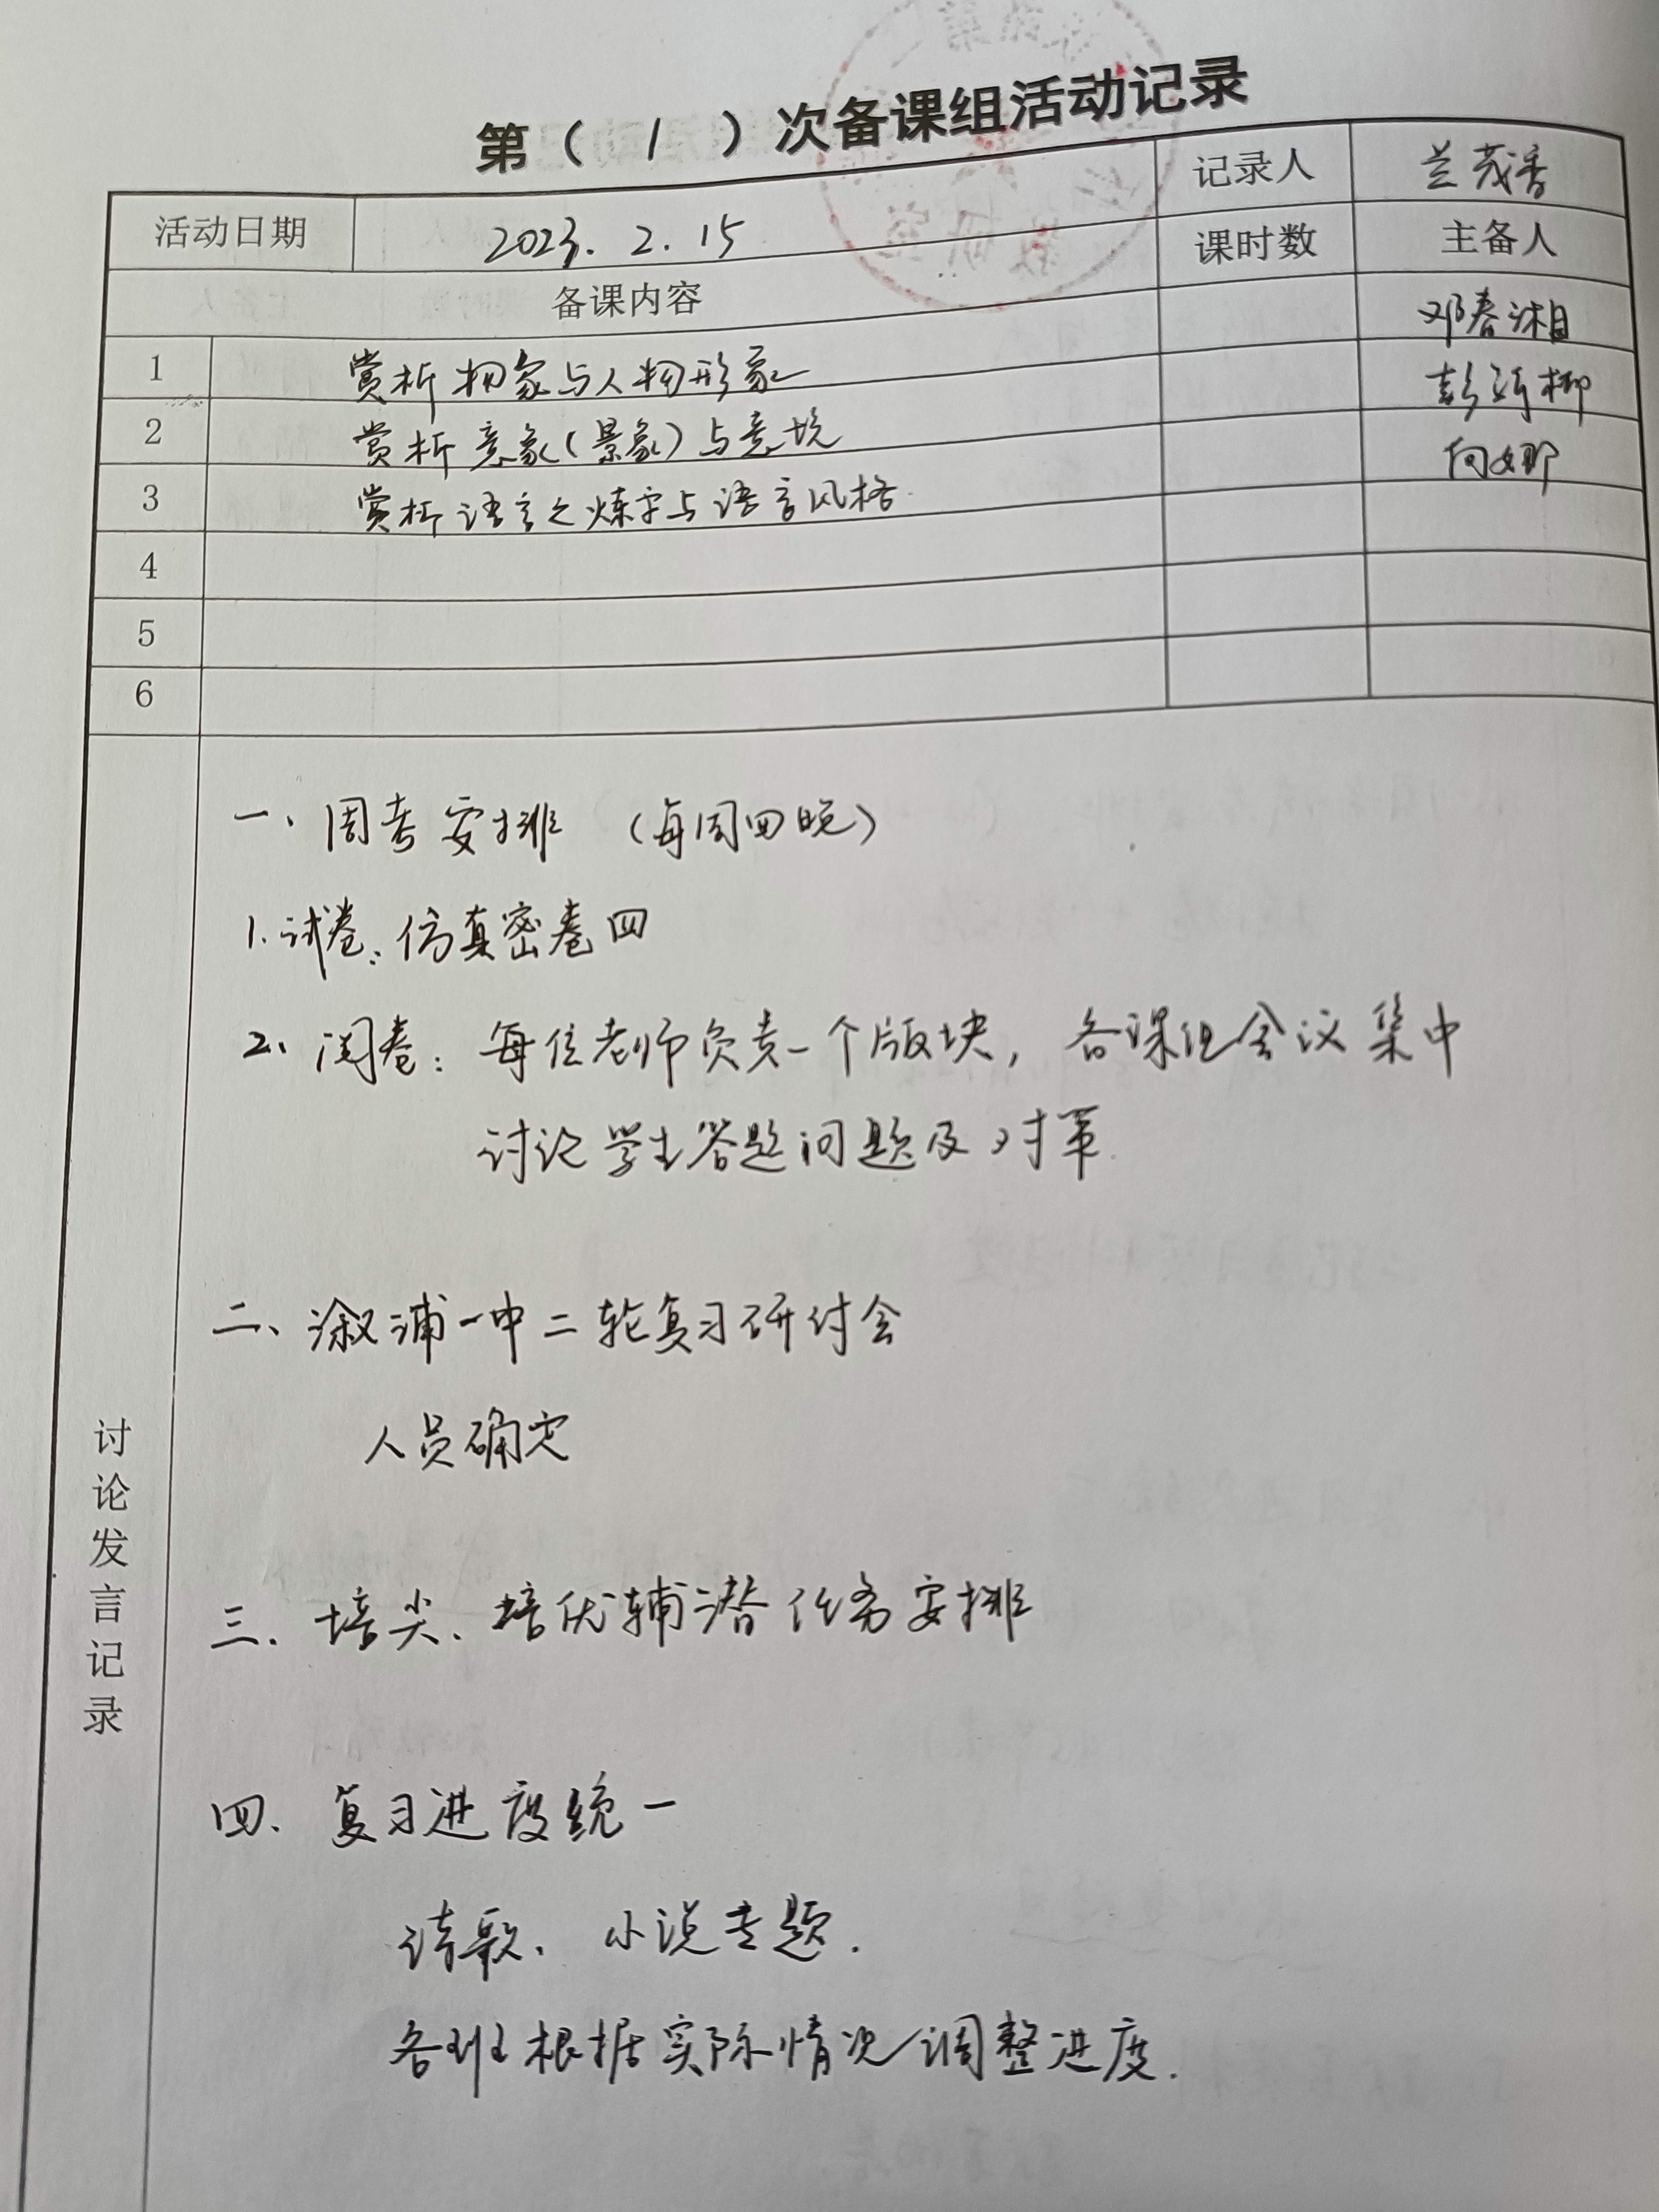 第（1）次备课组活动记录
活动日期 2023.2.15 记录人 兰茂香
课时数 主备人
备课内容 邓春湘
1 赏析物象与人物形象
2 赏析意象（景象）与意境 向娜
3 赏析语言之炼字与语言风格.
4
5
6
讨论发言记录
一、周考安排 （每周四晚）
1.试卷：仿真密卷四
2、阅卷：每位老师负责一个版块，备课组会议集中
讨论学生答题问题及对策.
二、溆浦一中二轮复习研讨会
人员确定
三、培尖、培优辅潜任务安排
四、复习进度统一
诗歌、小说专题.
各班根据实际情况调整进度.